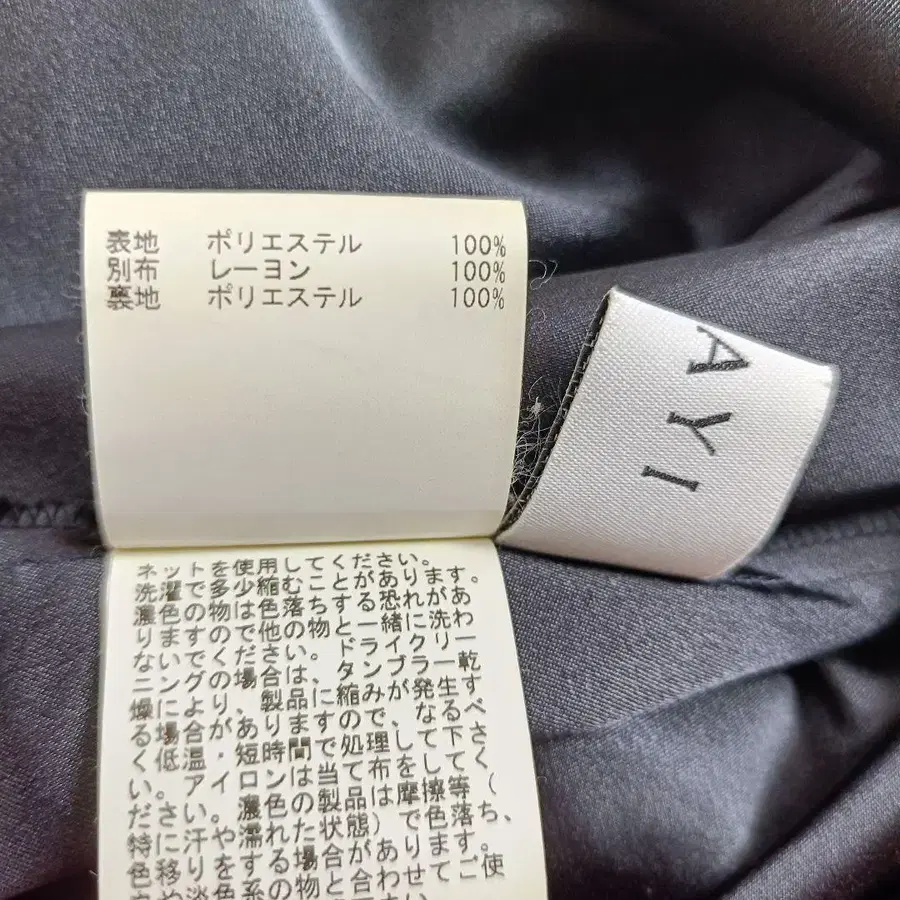 表地 ポリエステル 100%
別布 レーヨン 100%
裏地 ポリエステル 100%
AYI
ネットを使用してください。
洗濯で多少縮むことがあります。
濃色の物は色落ちする恐れがあ
りますので他の物と一緒に洗わ
ないでください。ドライクリー
ニングの場合は、タンブラー乾
燥により、製品に縮みが発生す
る場合がありますので、なるべ
く低温・短時間で処理して下さ
い。アイロンは当て布をしてく
ださい。濃色の製品は摩擦等（
特に汗や濡れた状態）で色落ち、
色移りをする場合があります。
淡色系の物と合わせてご使